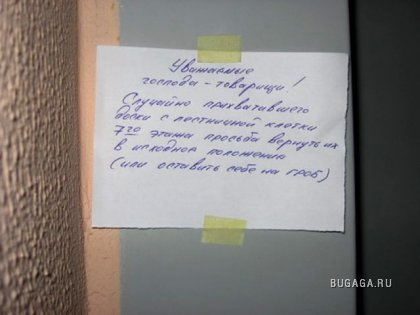 Уважаемые
господа - товарищи!
Случайно прихватившего
доски с лестничной клетки
7го этажа просьба вернуть их
в исходное положение
(или оставить себе на гроб)
BUGAGA.RU